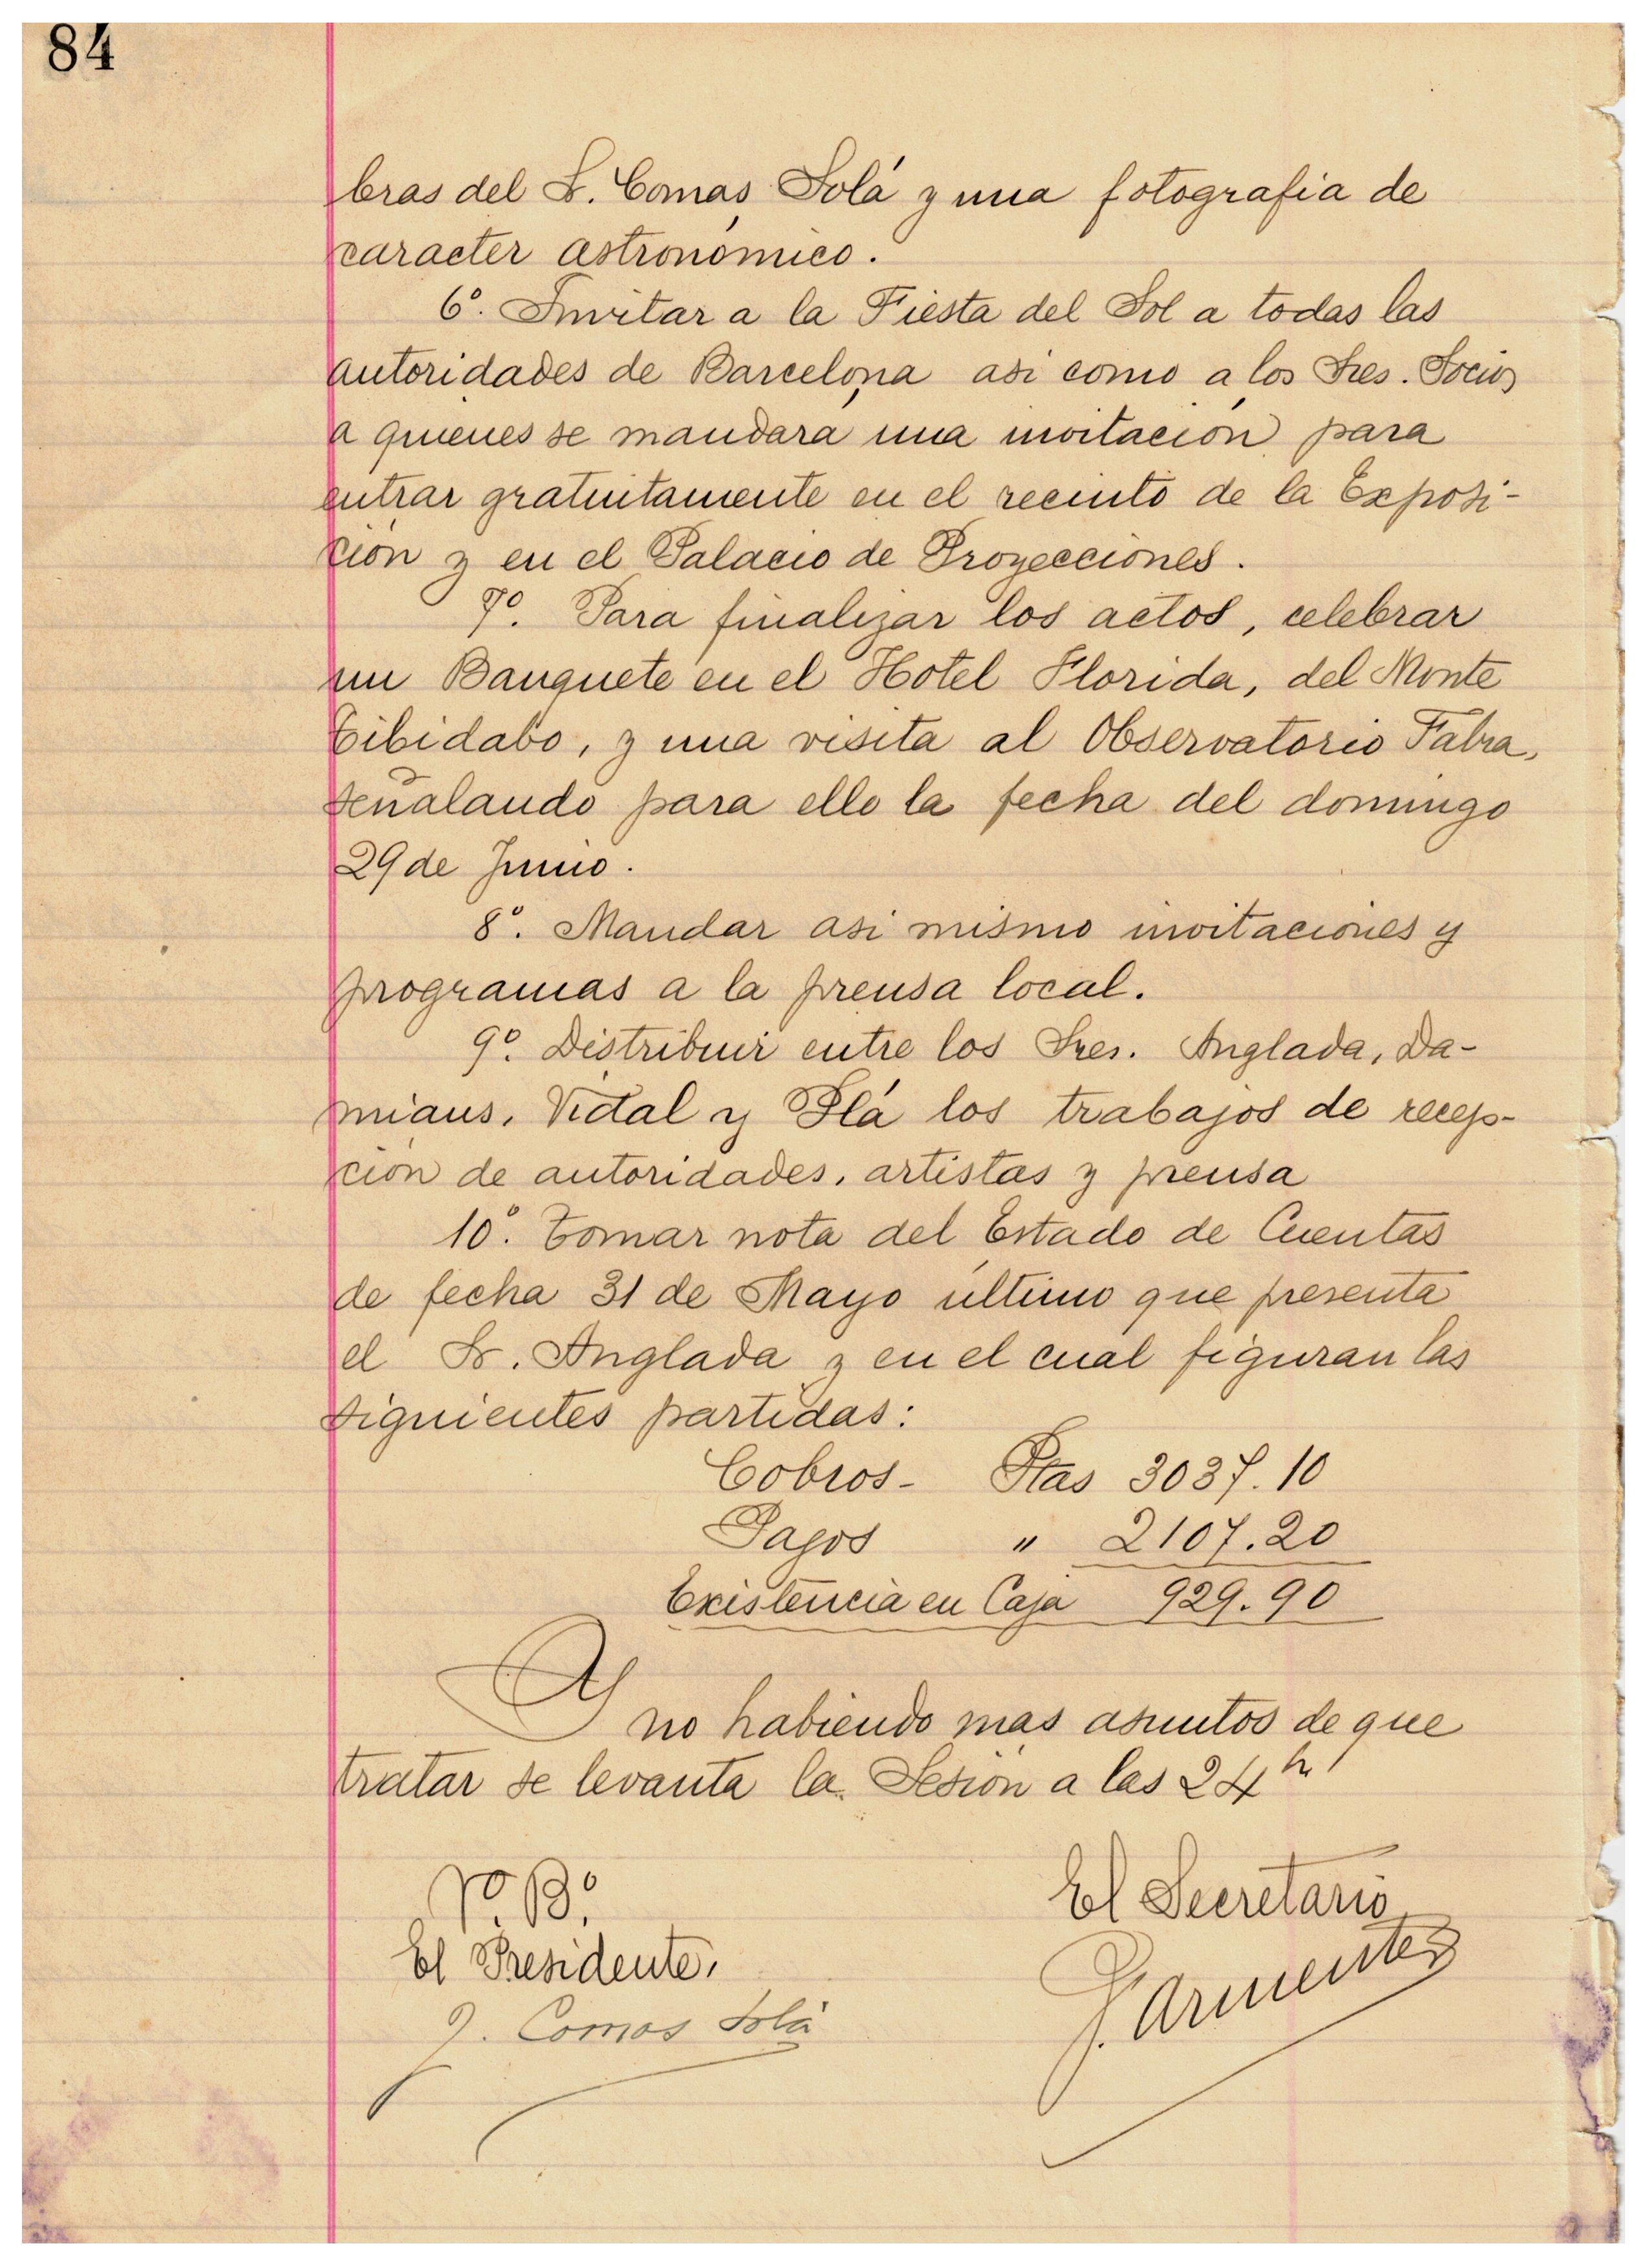 84
bras del Sr. Comas Solá y una fotografia de
caracter astronómico.
6º. Invitar a la Fiesta del Sol a todas las
autoridades de Barcelona asi como a los Sres. Socios
a quienes se mandará una invitación para
entrar gratuitamente en el recinto de la Exposi-
ción y en el Palacio de Proyecciones.
7º. Para finalizar los actos, celebrar
un Banquete en el Hotel Florida, del Monte
Tibidabo, y una visita al Observatorio Fabra,
señalando para ello la fecha del domingo
29 de Junio.
8º. Mandar asi mismo invitaciones y
programas a la prensa local.
9º. Distribuir entre los Sres. Anglada, Da-
mians, Vidal y Plá los trabajos de recep-
ción de autoridades, artistas y prensa
10º. Tomar nota del Estado de Cuentas
de fecha 31 de Mayo último que presenta
el Sr. Anglada y en el cual figuran las
siguientes partidas:
Cobros- Ptas 3037.10
Pagos " 2107.20
Existencia en Caja 929.90
Y
no habiendo mas asuntos de que
tratar se levanta la Sesión a las 24 h
Vº. Bº.
El Presidente,
J. Comas Solá
El Secretario
J. Armenter